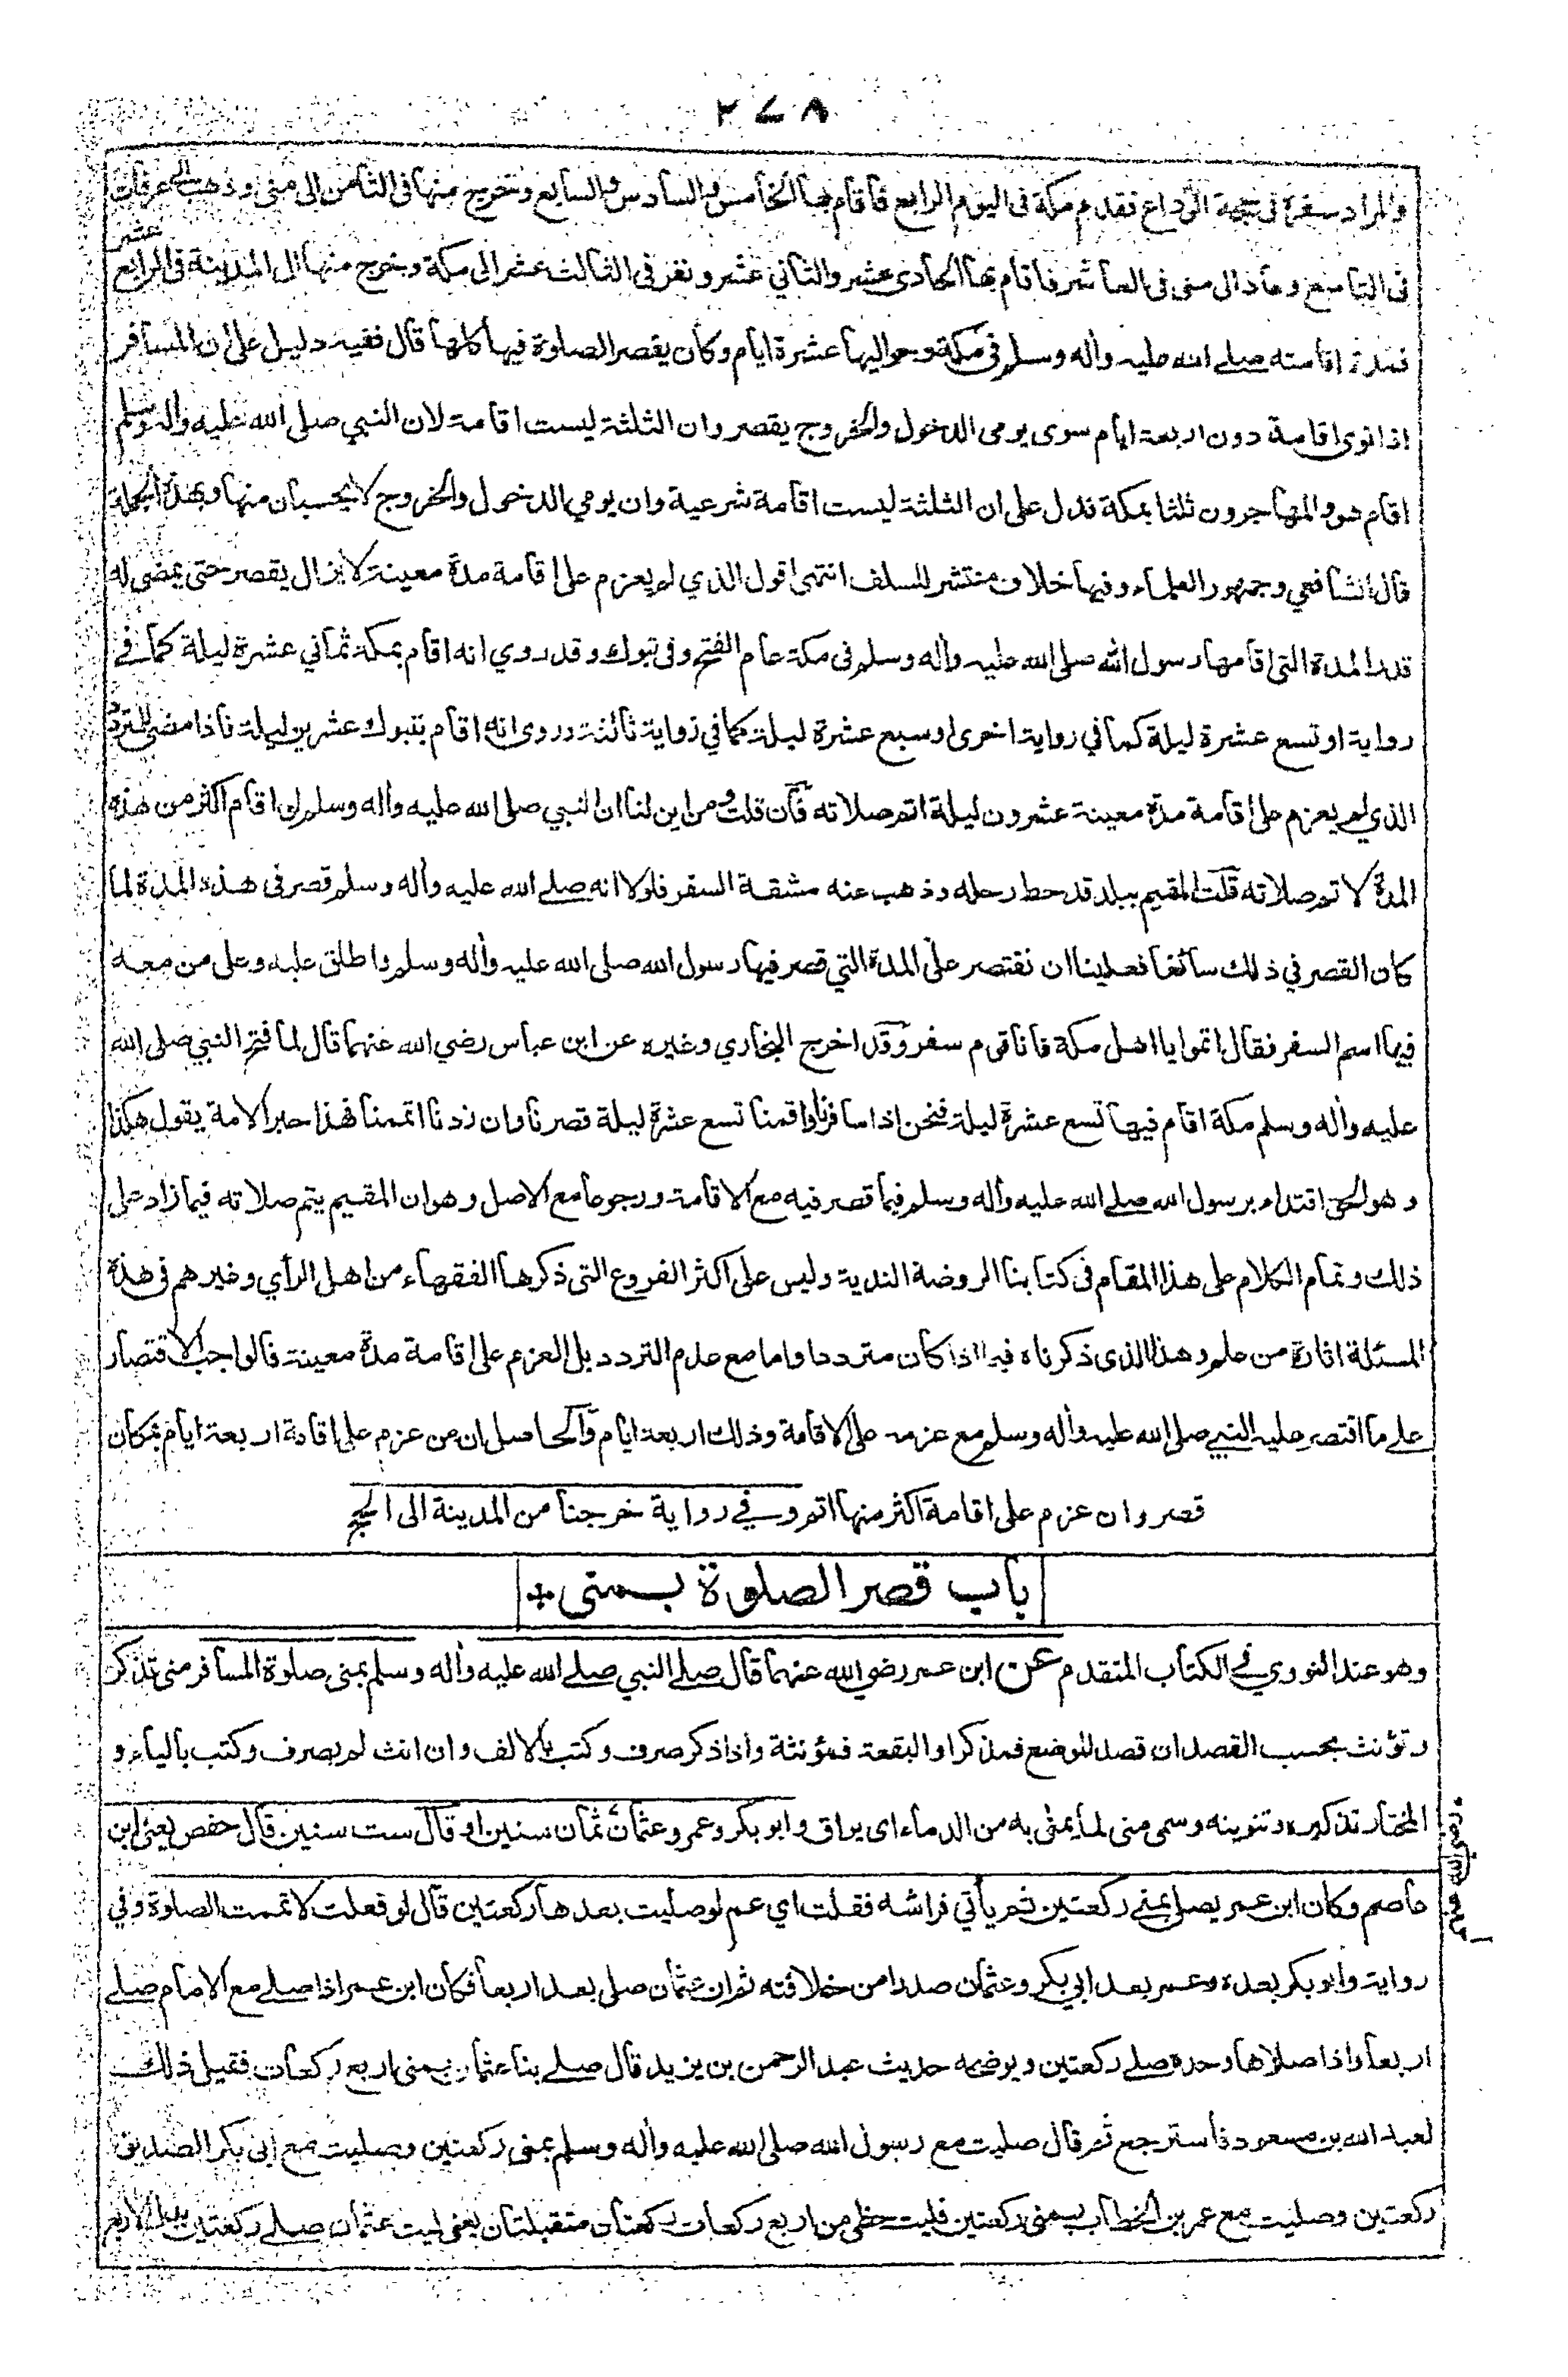 ٢٧٨
والمراد سفره في حجة الوداع فقدم مكة فى اليوم الرابع فأقام بها الخامس والسادس والسابع وخرج منها فى الثامن الى منى وذهب الى عرفات
فى التاسع وعاد الى منى فى العاشر فاقام بها الحادى عشر والثاني عشر ونفر فى الثالث عشر الى مكة وخرج منها الى المدينة فى الرابع عشر
فمدة اقامته صلى الله عليه وأله وسلم فى مكة وحواليها عشرة ايام وكان يقصر الصلوة فيها كلها قال ففيه دليل على ان المسافر
اذا نوى اقامة دون اربعة ايام سوى يومى الدخول والخروج يقصر وان الثلثة ليست اقامة لان النبي صلى الله عليه وأله وسلم
اقام هو والمهاجرون ثلثا بمكة فدل على ان الثلثة ليست اقامة شرعية وان يومي الدخول والخروج لا يحسبان منها وبهذه الجملة
قال الشافعي وجمهور العلماء وفيها خلاف منتشر للسلف انتهى اقول الذي لم يعزم على اقامة مدة معينة لا يزال يقصر حتى يمضى له
قدر المدة التى اقامها رسول الله صلى الله عليه وأله وسلم فى مكة عام الفتح وفى تبوك وقد روي انه اقام بمكة ثماني عشرة ليلة كما في
رواية او تسع عشرة ليلة كما في رواية اخرى او سبع عشرة ليلة كما في رواية ثالثة وروى انه اقام بتبوك عشرين ليلة فاذا مضى للمتردد
الذي لم يعزم على اقامة مدة معينة عشرون ليلة اتم صلاته فان قلت ومن اين لنا ان النبي صلى الله عليه وأله وسلم لو اقام اكثر من هذه
المدة لاتم صلاته قلت المقيم ببلد قد حط رحله وذهب عنه مشقة السفر فلولا انه صلى الله عليه وأله وسلم قصر فى هذه المدة لما
كان القصر في ذلك سائغا فعلينا ان نقتصر على المدة التي قصر فيها رسول الله صلى الله عليه وأله وسلم واطلق عليه وعلى من معه
فيها اسم السفر فقال اتموا يا اهل مكة فانا قوم سفر وقد اخرج البخاري وغيره عن ابن عباس رضي الله عنهما قال لما فتح النبي صلى الله
عليه وأله وسلم مكة اقام فيها تسع عشرة ليلة فنحن اذا سافرنا واقمنا تسع عشرة ليلة قصرنا وان زدنا اتممنا فهذا حبر الامة يقول هكذا
وهو الحق اقتداء برسول الله صلى الله عليه وأله وسلم فيما قصر فيه مع الاقامة ورجوعا مع الاصل وهو ان المقيم يتم صلاته فيما زاد على
ذلك وتمام الكلام على هذا المقام فى كتابنا الروضة الندية وليس على اكثر الفروع التى ذكرها الفقهاء من اهل الرأي وغيرهم فى هذه
المسئلة اثارة من علم وهذا الذى ذكرناه فيما اذا كان مترددا واما مع عدم التردد بل العزم على اقامة مدة معينة فالواجب الاقتصار
على ما اقتصر عليه النبي صلى الله عليه وأله وسلم مع عزمه على الاقامة وذلك اربعة ايام والحاصل ان من عزم على اقامة اربعة ايام بمكان
قصر وان عزم على اقامة اكثر منها اتم وفي رواية خرجنا من المدينة الى الحج
باب قصر الصلوة بمنى
وهو عند النووي في الكتاب المتقدم عن ابن عمر رضي الله عنهما قال صلى النبي صلى الله عليه وأله وسلم بمنى صلوة المسافر منى تذكر
وتؤنث بحسب القصد ان قصد الموضع فمذكر او البقعة فمؤنثة واذا ذكر صرف وكتب بالالف وان انث لم يصرف وكتب بالياء و
المختار تذكيره وتنوينه وسمى منى لما يمنى به من الدماء اى يراق وابو بكر وعمر وعثمان ثمان سنين او قال ست سنين قال حفص يعني ابن
رضي الله عنهم
عاصم وكان ابن عمر يصلي بمنى ركعتين ثم يأتي فراشه فقلت اي عم لو صليت بعدها ركعتين قال لو فعلت لاتممت الصلوة وفي
رواية وابو بكر بعده وعمر بعد ابي بكر وعثمان صدرا من خلافته ثم ان عثمان صلى بعد اربعا فكان ابن عمر اذا صلى مع الامام صلى
اربعا واذا صلاها وحده صلى ركعتين ويوضحه حديث عبد الرحمن بن يزيد قال صلى بنا عثمان بمنى اربع ركعات فقيل ذلك
لعبد الله بن مسعود فاسترجع ثم قال صليت مع رسول الله صلى الله عليه وأله وسلم بمنى ركعتين وصليت مع ابى بكر الصديق
ركعتين وصليت مع عمر بن الخطاب بمنى ركعتين فليت حظى من اربع ركعات ركعتان متقبلتان يعنى ليت عثمان صلى ركعتين بدل الاربع